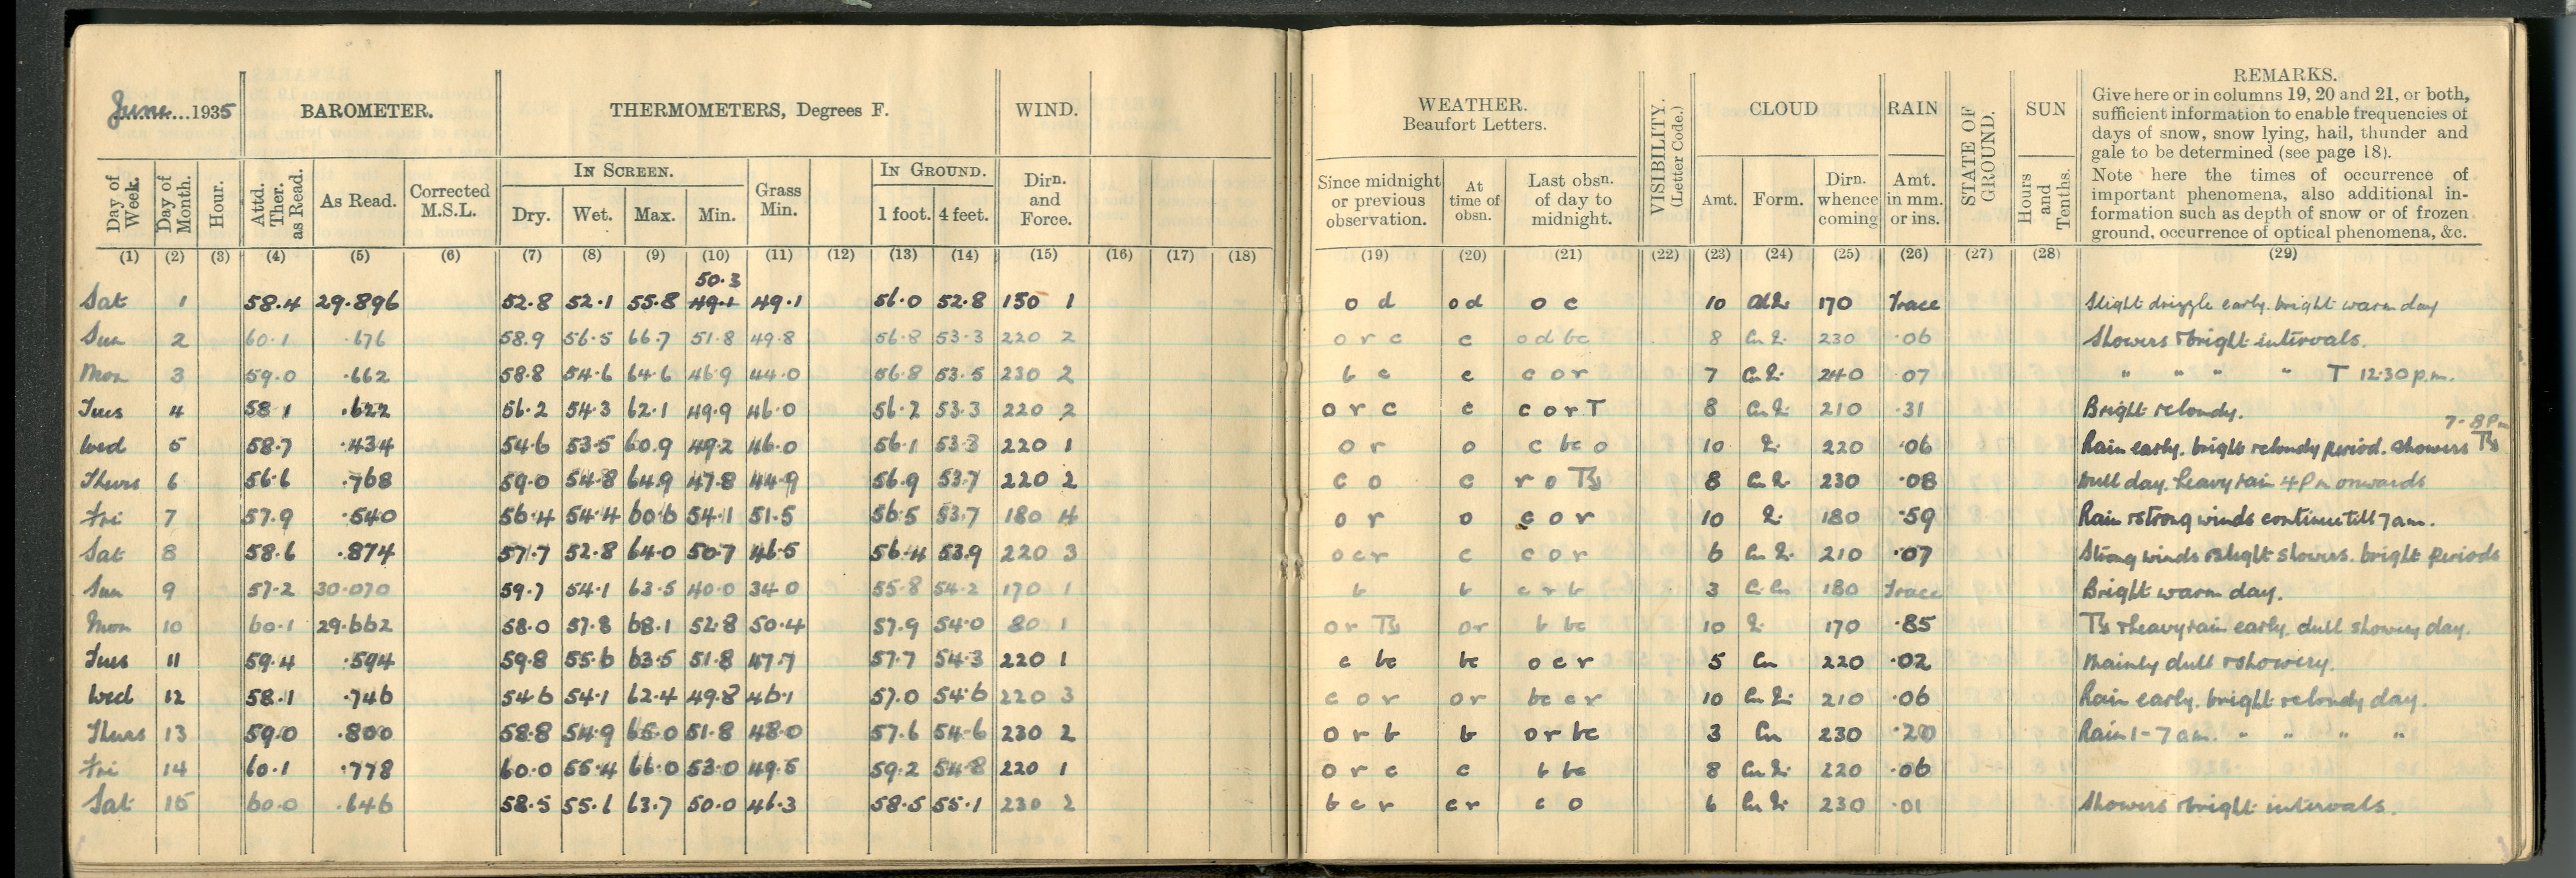 June 1935 BAROMETER. THERMOMETERS, Degrees F. WIND.
IN SCREEN. IN GROUND.
Day of Week. Day of Month. Hour. Attd. Ther. as Read. As Read. Corrected M.S.L. Dry. Wet. Max. Min. Grass Min. 1 foot. 4 feet. Dirn. and Force.
(1) (2) (3) (4) (5) (6) (7) (8) (9) (10) (11) (12) (13) (14) (15) (16) (17) (18)
50.3
Sat 1 58.4 29.896 52.8 52.1 55.8 49.1 49.1 56.0 52.8 150 1
Sun 2 60.1 .676 58.9 56.5 66.7 51.8 49.8 56.8 53.3 220 2
Mon 3 59.0 .662 58.8 54.6 64.6 46.9 44.0 56.8 53.5 230 2
Tues 4 58.1 .622 56.2 54.3 62.1 49.9 46.0 56.2 53.3 220 2
Wed 5 58.7 .434 54.6 53.5 60.9 49.2 46.0 56.1 53.3 220 1
Thurs 6 56.6 .768 59.0 54.8 64.9 47.8 44.9 56.9 53.7 220 2
Fri 7 57.9 .540 56.4 54.4 60.6 54.1 51.5 56.5 53.7 180 4
Sat 8 58.6 .874 57.7 52.8 64.0 50.7 46.5 56.4 53.9 220 3
Sun 9 57.2 30.070 59.7 54.1 63.5 40.0 34.0 55.8 54.2 170 1
Mon 10 60.1 29.662 58.0 57.8 68.1 52.8 50.4 57.9 54.0 80 1
Tues 11 59.4 .594 59.8 55.6 63.5 51.8 47.7 57.7 54.3 220 1
Wed 12 58.1 .746 54.6 54.1 62.4 49.8 46.1 57.0 54.6 220 3
Thurs 13 59.0 .800 58.8 54.9 65.0 51.8 48.0 57.6 54.6 230 2
Fri 14 60.1 .778 60.0 55.4 66.0 53.0 49.5 59.2 54.8 220 1
Sat 15 60.0 .646 58.5 55.1 63.7 50.0 46.3 58.5 55.1 230 2
WEATHER. Beaufort Letters. VISIBILITY. (Letter Code.) CLOUD RAIN STATE OF GROUND. SUN
Since midnight or previous observation. At time of obsn. Last obsn. of day to midnight. Amt. Form. Dirn. whence coming Amt. in mm. or ins. Hours and Tenths.
REMARKS.
Give here or in columns 19, 20 and 21, or both,
sufficient information to enable frequencies of
days of snow, snow lying, hail, thunder and
gale to be determined (see page 18).
Note here the times of occurrence of
important phenomena, also additional in-
formation such as depth of snow or of frozen
ground, occurrence of optical phenomena, &c.
(19) (20) (21) (22) (23) (24) (25) (26) (27) (28) (29)
o d od o c 10 170 Trace Slight drizzle early. bright warm day
o r c c o d bc 8 230 .06 Showers & bright intervals.
b c c c o r 7 240 .07 " " " " T 12.30 p.m.
o r c c c o r T 8 210 .31 Bright & cloudy.
7-8 Pm
o r o c bc o 10 220 .06 Rain early. bright & cloudy period. showers
c o c r o 8 230 .08 Dull day. heavy rain 4 Pm onwards
o r o c o r 10 180 .59 Rain & strong winds continue till 7 am.
o c r c c o r 6 210 .07 Strong winds & slight showers. bright periods
b b c r b 3 180 Trace Bright warm day.
o r or b bc 10 170 .85 & heavy rain early. dull showery day.
c bc bc o c r 5 Cu 220 .02 Mainly dull & showery.
c o r or bc c r 10 210 .06 Rain early. bright & cloudy day.
o r b b o r bc 3 Cu 230 .20 Rain 1-7 am. " " " "
o r c c b bc 8 220 .06
b c r c r c o 6 230 .01 Showers & bright intervals.